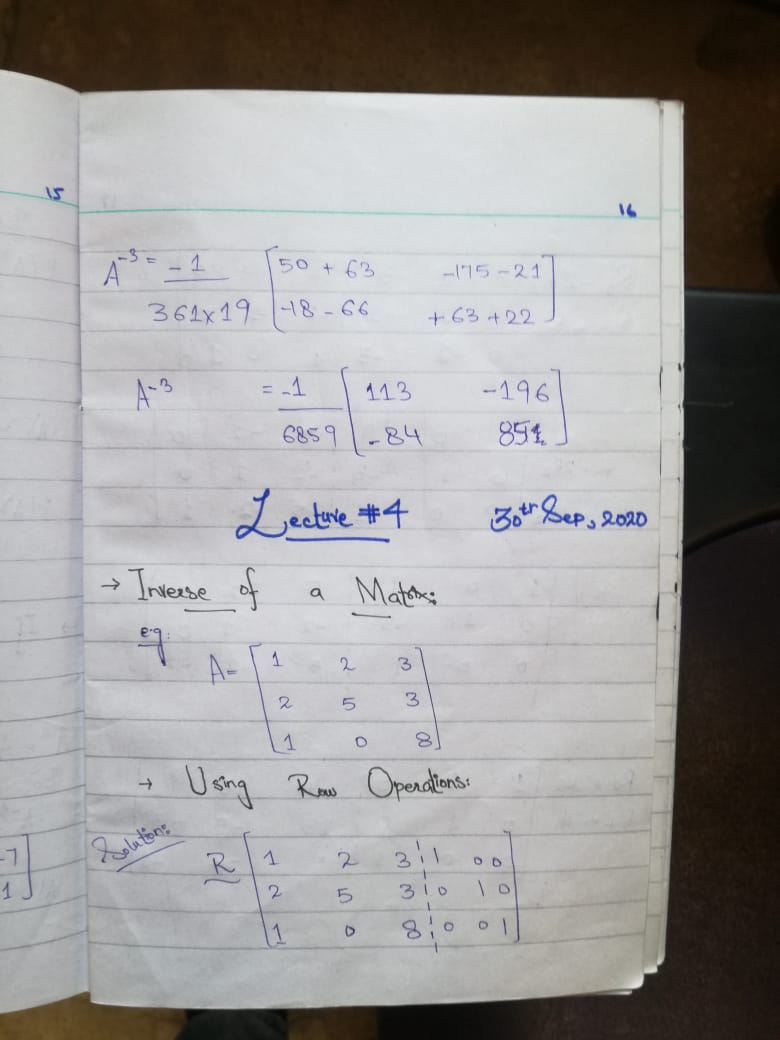 15
16
A⁻³ = -1 [50 + 63 -175 - 21]
361x19 [-18 - 66 + 63 + 22]
A⁻³ = -1 [113 -196]
6859 [-84 ]
Lecture #4 30th Sep, 2020
→ Inverse of a Matrix:
e.g.
A= [1 2 3]
2 5 3
[1 0 8]
→ Using Row Operations:
Solution:
R [1 2 3 ¦ 1 0 0]
2 5 3 ¦ 0 1 0
[1 0 8 ¦ 0 0 1]
-7
1